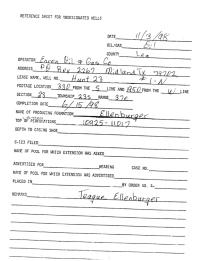 REFERENCE SHEET FOR UNDESIGNATED WELLS
DATE 11/3/98
OIL/GAS Oil
COUNTY Lea
OPERATOR Enron Oil & Gas Co
ADDRESS PO Box 2267 Midland Tx 79702
LEASE NAME, WELL NO. Hunt 23 #1-N
FOOTAGE LOCATION 330 FROM THE S LINE AND FROM THE W LINE
SECTION 23 TOWNSHIP 23S RANGE 37e
COMPLETION DATE 6/15/98
NAME OF PRODUCING FORMATION Ellenburger
TOP OF PERFORATIONS 10925-11017
DEPTH TO CASING SHOE
C-123 FILED
NAME OF POOL FOR WHICH EXTENSION WAS ASKED
ADVERTISED FOR HEARING CASE NO.
NAME OF POOL FOR WHICH EXTENSION WAS ADVERTISED
PLACED IN BY ORDER NO. R-
REMARKS Teague Ellenburger